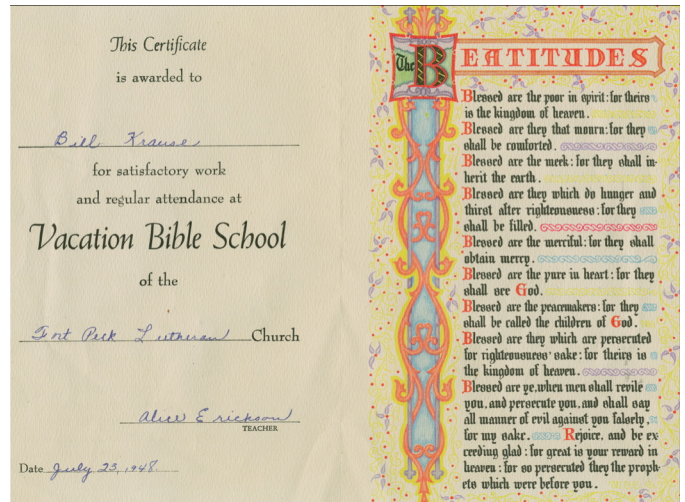 This Certificate
is awarded to
Bill Krause
for satisfactory work
and regular attendance at
Vacation Bible School
of the
Fort Peck Lutheran Church
Alice Erickson
TEACHER
Date July 23, 1948.
The BEATITUDES
Blessed are the poor in spirit: for theirs
is the kingdom of heaven.
Blessed are they that mourn: for they
shall be comforted.
Blessed are the meek: for they shall in-
herit the earth.
Blessed are they which do hunger and
thirst after righteousness: for they
shall be filled.
Blessed are the merciful: for they shall
obtain mercy.
Blessed are the pure in heart: for they
shall see God.
Blessed are the peacemakers: for they
shall be called the children of God.
Blessed are they which are persecuted
for righteousness' sake: for theirs is
the kingdom of heaven.
Blessed are ye, when men shall revile
you, and persecute you, and shall say
all manner of evil against you falsely,
for my sake. Rejoice, and be ex
ceeding glad: for great is your reward in
heaven: for so persecuted they the proph-
ets which were before you.